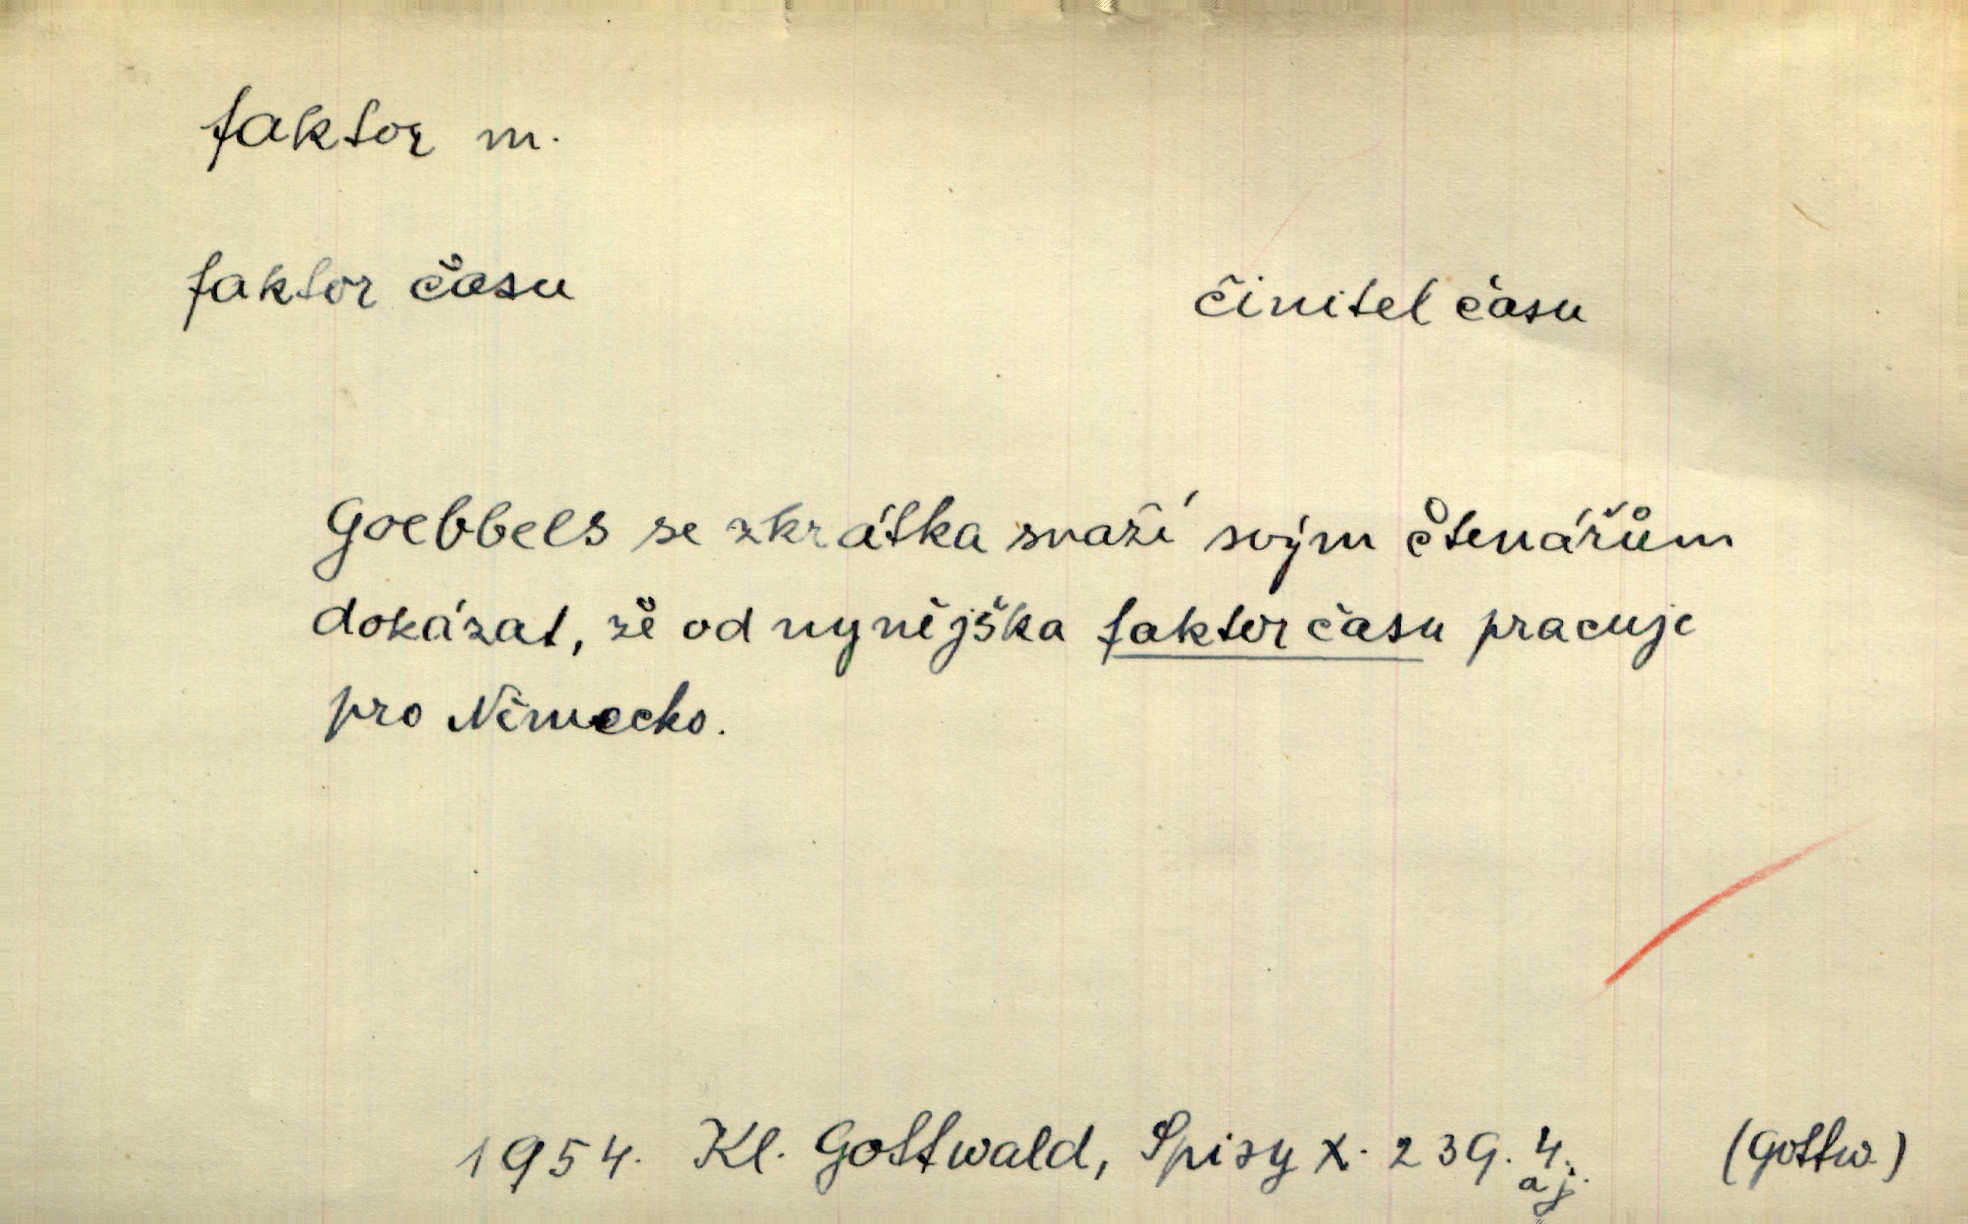 faktor m.
faktor času
činitel času
Goebbels se zkrátka snaží svým čtenářům
dokázat, že od nynějška faktor času pracuje
pro Německo.
1954. Kl. Gottwald, Spisy X. 239. 4.
aj.
(Gottw.)